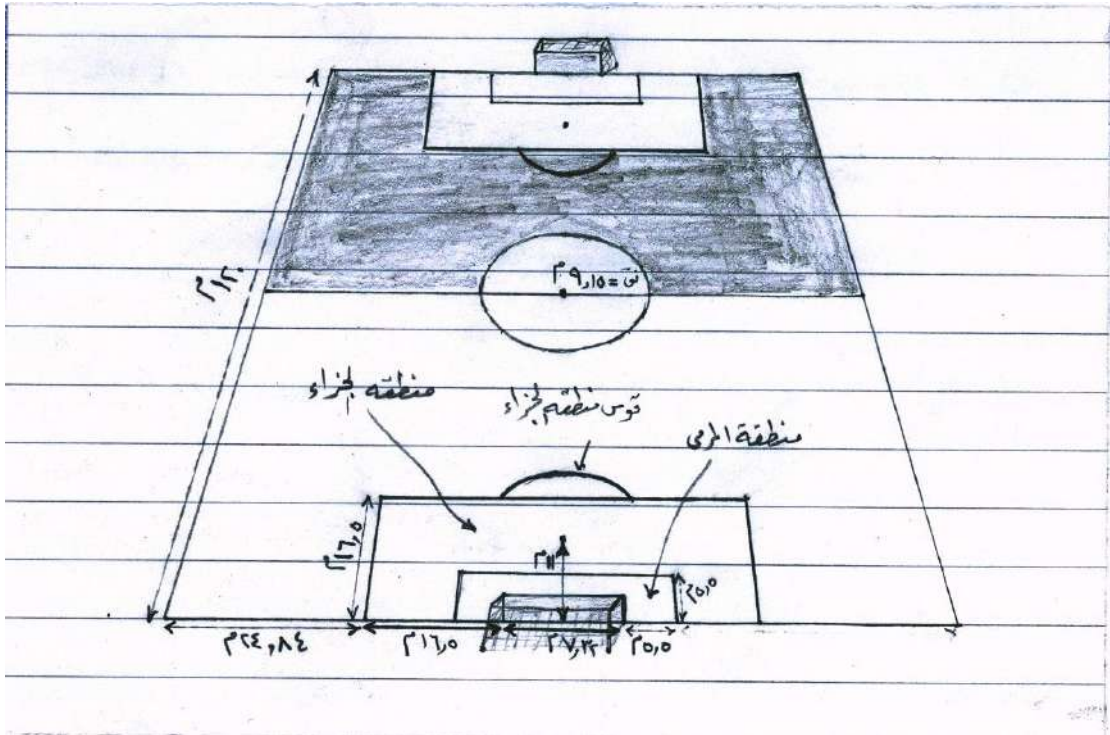 ١٢٠م
نق = ٩,١٥ م
منطقة الجزاء
قوس منطقة الجزاء
منطقة المرمى
١٦,٥م
١١م
٥,٥م
٢٤,٨٤م
١٦,٥م
٧,٣٢م
٥,٥م